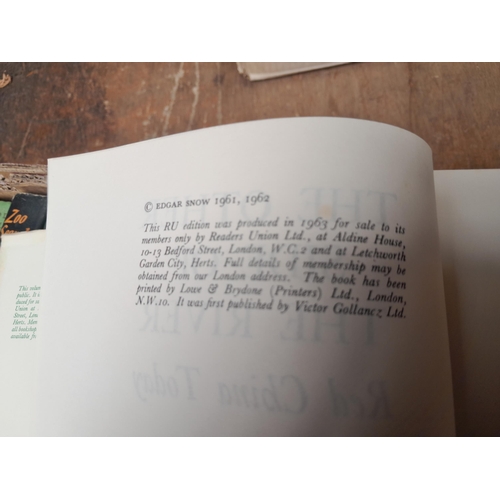 © EDGAR SNOW 1961, 1962
This RU edition was produced in 1963 for sale to its
members only by Readers Union Ltd., at Aldine House,
10-13 Bedford Street, London, W.C.2 and at Letchworth
Garden City, Herts. Full details of membership may be
obtained from our London address. The book has been
printed by Lowe & Brydone (Printers) Ltd., London,
N.W.10. It was first published by Victor Gollancz Ltd.
THE
THE RIVER
Red China Today
Zoo
This volum
public. It is
duced for sa
Union at
Street, Lon
Herts. Mem
all bookshop
available fr